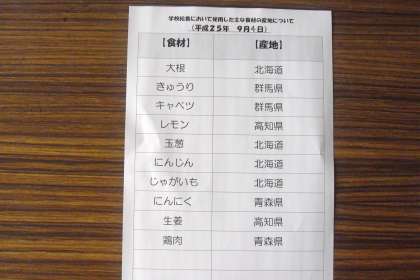 学校給食において使用した主な食材の産地について
(平成25年 9月4日)
【食材】 【産地】
大根 北海道
きゅうり 群馬県
キャベツ 群馬県
レモン 高知県
玉葱 北海道
にんじん 北海道
じゃがいも 北海道
にんにく 青森県
生姜 高知県
鶏肉 青森県